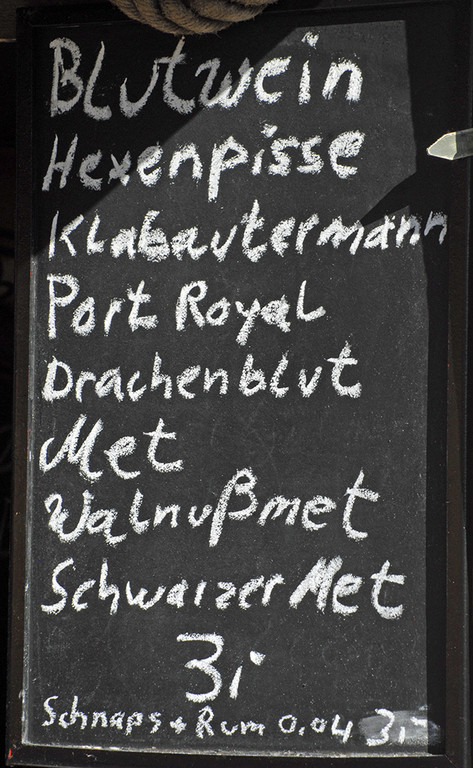 Blutwein
Hexenpisse
Klabautermann
Port Royal
Drachenblut
Met
Walnußmet
Schwarzer Met
3,-
Schnaps + Rum 0.04 3,-